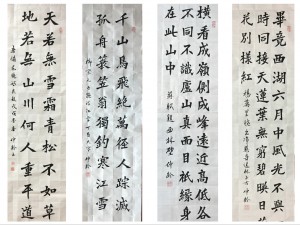 畢竟西湖六月中風光不與四
時同接天蓮葉無窮碧映日荷
花別樣紅
橫看成嶺側成峰遠近高低
不同不識廬山真面目只緣身
在此山中 蘇軾題西林壁 仲齡
千山鳥飛絕萬徑人蹤滅
孤舟簑笠翁獨釣寒江雪
天若無雪霜青松不如草
地若無山川何人重平道